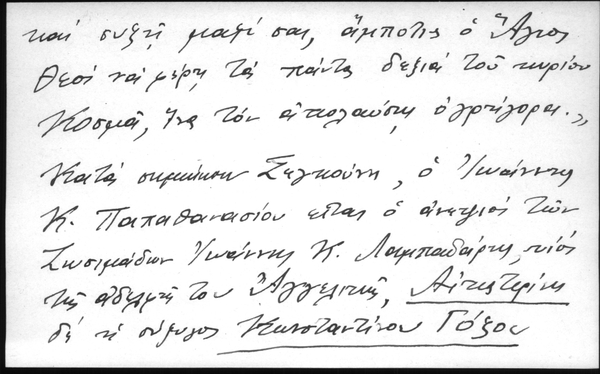 καί συζῆ μαζί σας, ἄμποτες ὁ Ἅγιος
Θεός νά φέρῃ τά πάντα δεξιά τοῦ κυρίου
Κοσμᾶ, ἵνα τόν ἀπολαύσῃ ὀγρήγορα.»
Κατά σημείωσιν Σεγκούνη, ὁ Ἰωάννης
Κ. Παπαθανασίου εἶναι ὁ ἀνεψιός τῶν
Ζωσιμάδων Ἰωάννης Κ. Λαμπαδάρης, υἱός
τῆς ἀδελφῆς των Ἀγγελικῆς, Αἰκατερίνη
δέ ἡ σύζυγος Κωνσταντίνου Γόζου